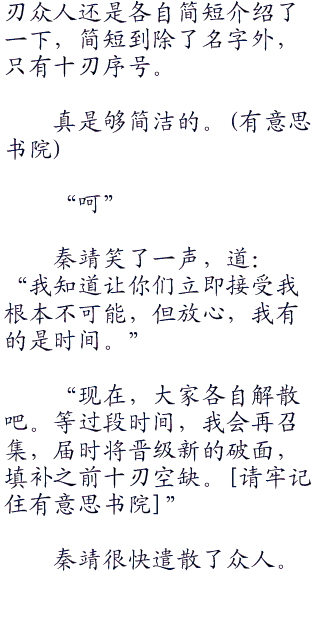 刃众人还是各自简短介绍了
一下，简短到除了名字外，
只有十刃序号。
真是够简洁的。(有意思
书院)
“呵”
秦靖笑了一声，道：
“我知道让你们立即接受我
根本不可能，但放心，我有
的是时间。”
“现在，大家各自解散
吧。等过段时间，我会再召
集，届时将晋级新的破面，
填补之前十刃空缺。[请牢记
住有意思书院]”
秦靖很快遣散了众人。